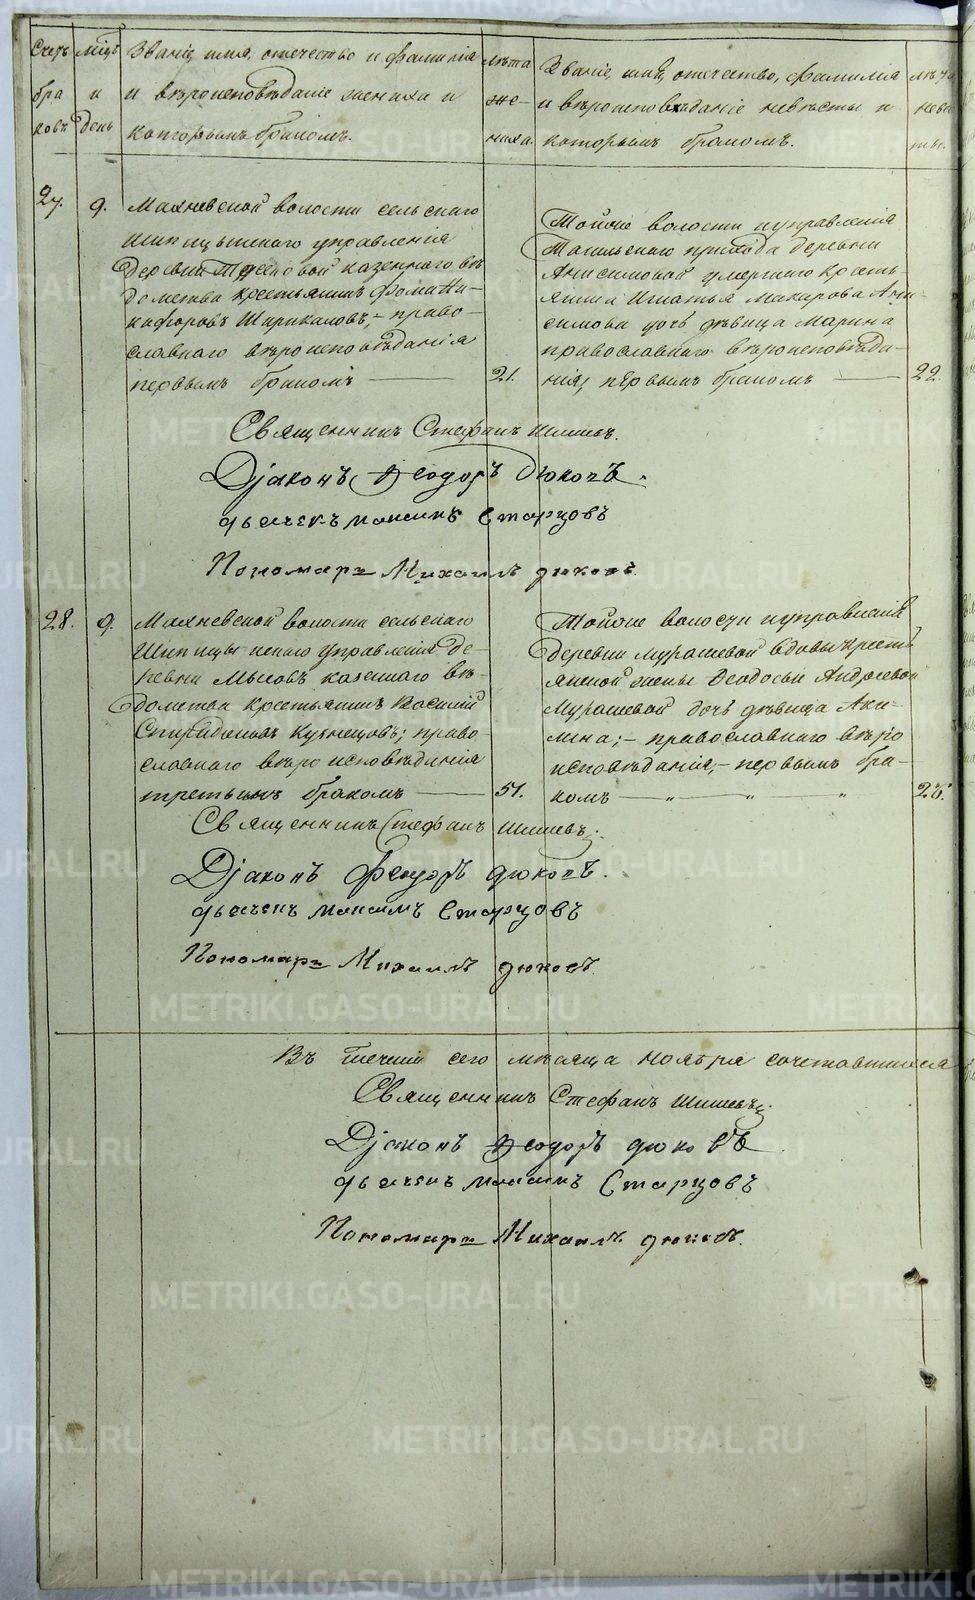 Счетъ бра ковъ
мѣцъ и день
Званіе, имя, отчество и фамилія
и вѣроисповѣданіе жениха и
которымъ бракомъ.
лѣта же- ниха.
Званіе, имя, отчество, фамилія
и вѣроисповѣданіе невѣсты и
которымъ бракомъ.
27. 9. Махневской волости сельскаго
Шипицынскаго управленія
деревни казеннаго вѣ-
домства крестьянинъ Фома Ни-
кифоровъ Ширинкаловъ, - право-
славнаго вѣроисповѣданія
первымъ бракомъ — 21.
Тойже волости и управленія
Тагильскаго прихода деревни
Анисимовой умершаго кресть-
янина Игнатья Макарова Ани-
симова дочь дѣвица Марина
православнаго вѣроисповѣда-
нія, первымъ бракомъ — 22.
Священникъ Стефанъ Шишевъ.
Діаконъ Феодоръ Дюковъ.
дьячекъ Максимъ Старцовъ
Пономарь Михаилъ Дюковъ.
28. 9. Махневской волости сельскаго
Шипицынскаго управленія де-
ревни Мысовъ казеннаго вѣ-
домства крестьянинъ Василій
Спиридоновъ Кузнецовъ; право-
славнаго вѣроисповѣданія
третьимъ бракомъ — 51.
Тойже волости и управленія
деревни Мурашевой вдовы кресть-
янской жены Феодосьи Андреевой
Мурашевой дочь дѣвица Аки-
лина; - православнаго вѣро
исповѣданія, - первымъ бра-
комъ — „ „ „
Священникъ Стефанъ Шишевъ.
Діаконъ Феодоръ Дюковъ.
дьячекъ Максимъ Старцовъ
Пономарь Михаилъ Дюковъ.
Въ теченіи сего мѣсяца ноября сочетавшихся
Священникъ Стефанъ Шишевъ.
Діаконъ Феодоръ Дюковъ
дьячекъ Максимъ Старцовъ
Пономарь Михаилъ Дюковъ.
METRIKI.GASO-URAL.RU